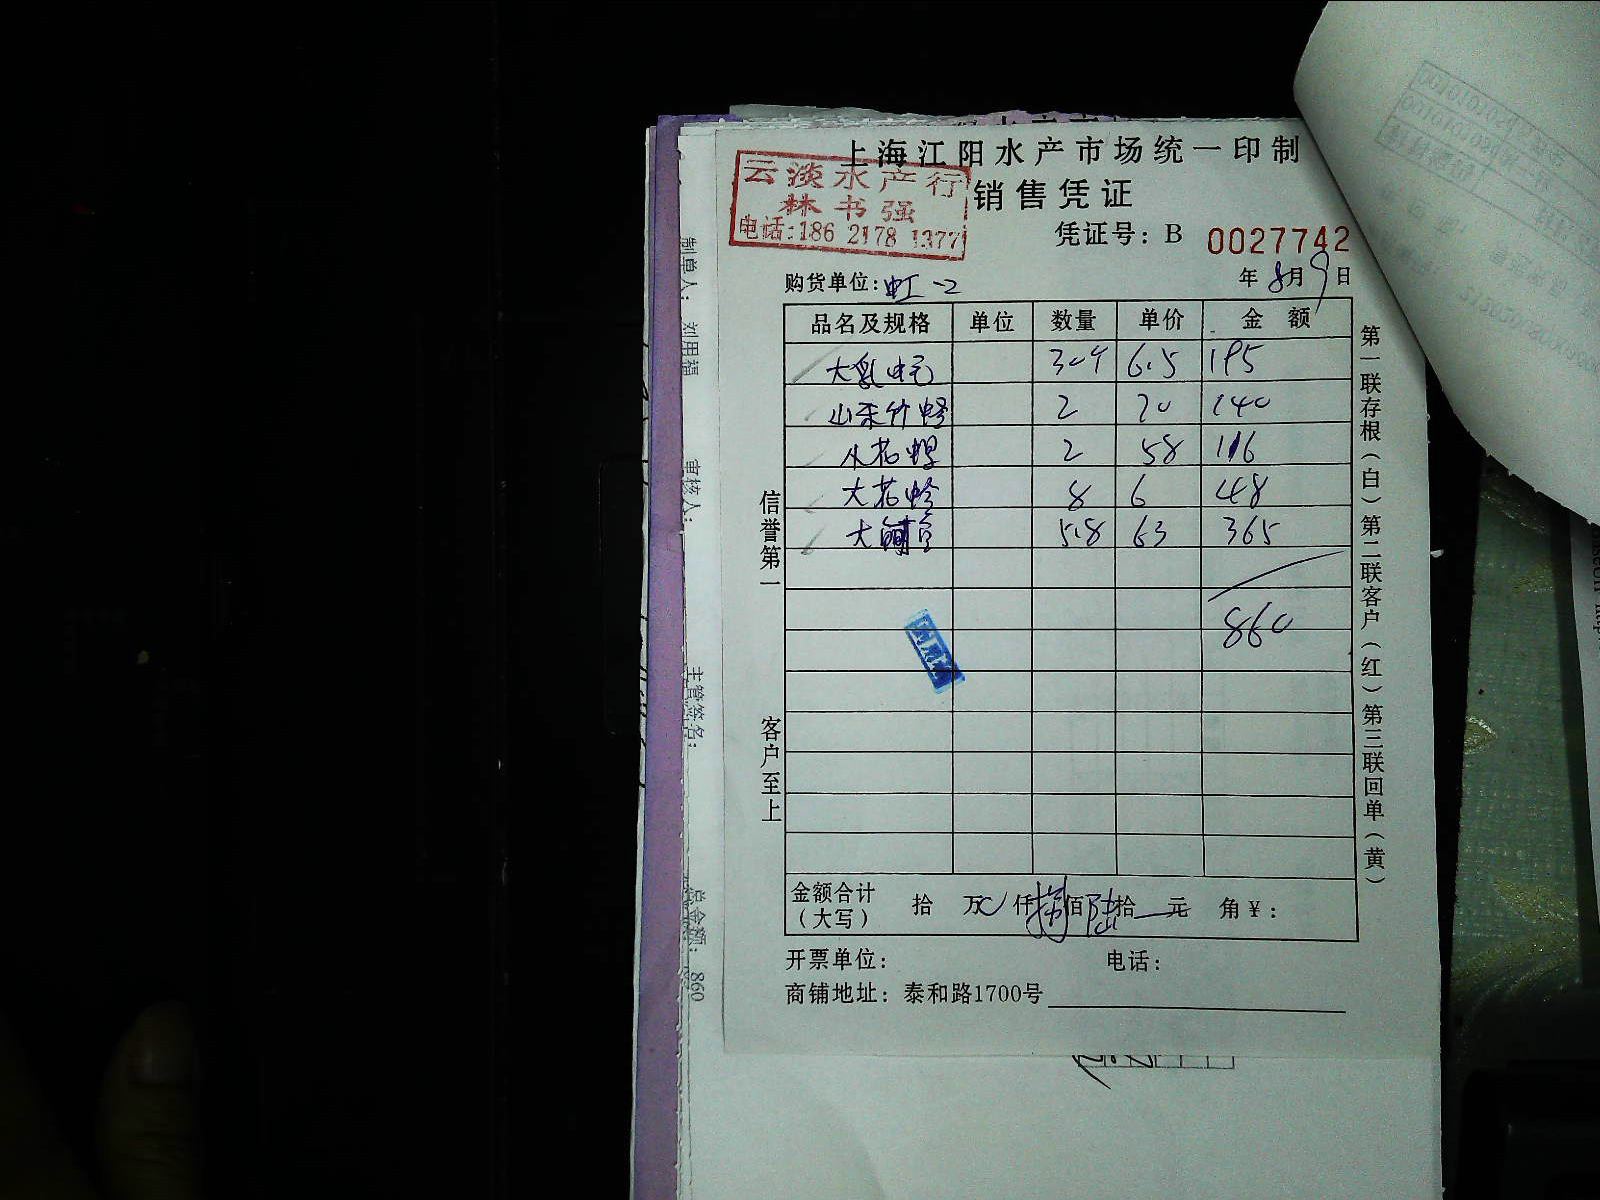 上海江阳水产市场统一印制
销售凭证
云淡水产行
林书强
电话:186 2178 1377
凭证号: B 0027742
购货单位: 虹-2 年 8月9日
品名及规格 单位 数量 单价 金 额
大 6.5 195
山东竹蛏 2 70 140
花 2 58 116
大花蛤 8 6 48
大 5.8 63 365
860
信誉第一
客户至上
第一联存根(白)第二联客户(红)第三联回单(黄)
金额合计(大写) 拾 万 仟 捌佰陆拾 元 角 ¥:
开票单位: 电话:
商铺地址: 泰和路1700号
制单人: 刘用福
审核人:
主管签名:
总金额: 860